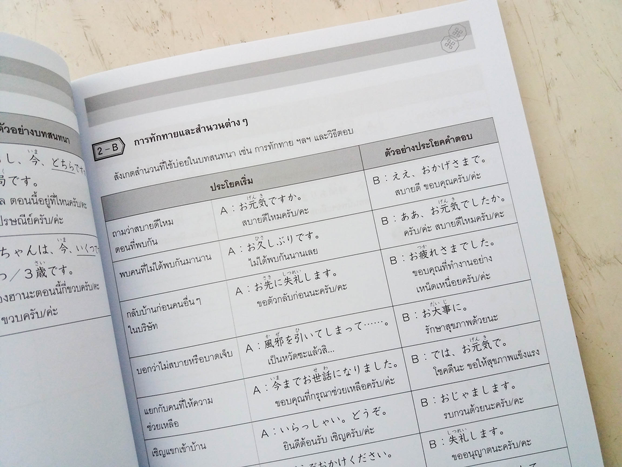 ตัวอย่างบทสนทนา
し、今、どちらです
局です。
ล ตอนนี้อยู่ที่ไหนครับ/คะ
ไปรษณีย์ครับ/ค่ะ
ちゃんは、今、いくつ
っ／3歳です。
องฮานะตอนนี้กี่ขวบครับ/คะ
ขวบครับ/ค่ะ
2-B การทักทายและสำนวนต่าง ๆ
สังเกตสำนวนที่ใช้บ่อยในบทสนทนา เช่น การทักทาย ฯลฯ และวิธีตอบ
ประโยคเริ่ม ตัวอย่างประโยคคำตอบ
ถามว่าสบายดีไหม
ตอนที่พบกัน
A：お元気ですか。
สบายดีไหมครับ/คะ
B：ええ、おかげさまで。
สบายดี ขอบคุณครับ/ค่ะ
พบคนที่ไม่ได้พบกันมานาน
A：お久しぶりです。
ไม่ได้พบกันนานเลย
B：ああ、お元気でしたか。
ครับ/ค่ะ สบายดีไหมครับ/คะ
กลับบ้านก่อนคนอื่น ๆ
ในบริษัท
A：お先に失礼します。
ขอตัวกลับก่อนนะครับ/คะ
B：お疲れさまでした。
ขอบคุณที่ทำงานอย่าง
เหน็ดเหนื่อยครับ/ค่ะ
บอกว่าไม่สบายหรือบาดเจ็บ
A：風邪を引いてしまって……。
เป็นหวัดซะแล้วสิ...
B：お大事に。
รักษาสุขภาพด้วยนะ
แยกกับคนที่ให้ความ
ช่วยเหลือ
A：今までお世話になりました。
ขอบคุณที่กรุณาช่วยเหลือครับ/ค่ะ
B：では、お元気で。
โชคดีนะ ขอให้สุขภาพแข็งแรง
เชิญแขกเข้าบ้าน
A：いらっしゃい。どうぞ。
ยินดีต้อนรับ เชิญครับ/ค่ะ
B：おじゃまします。
รบกวนด้วยนะครับ/คะ
おかけください。
B：失礼します。
ขออนุญาตนะครับ/คะ